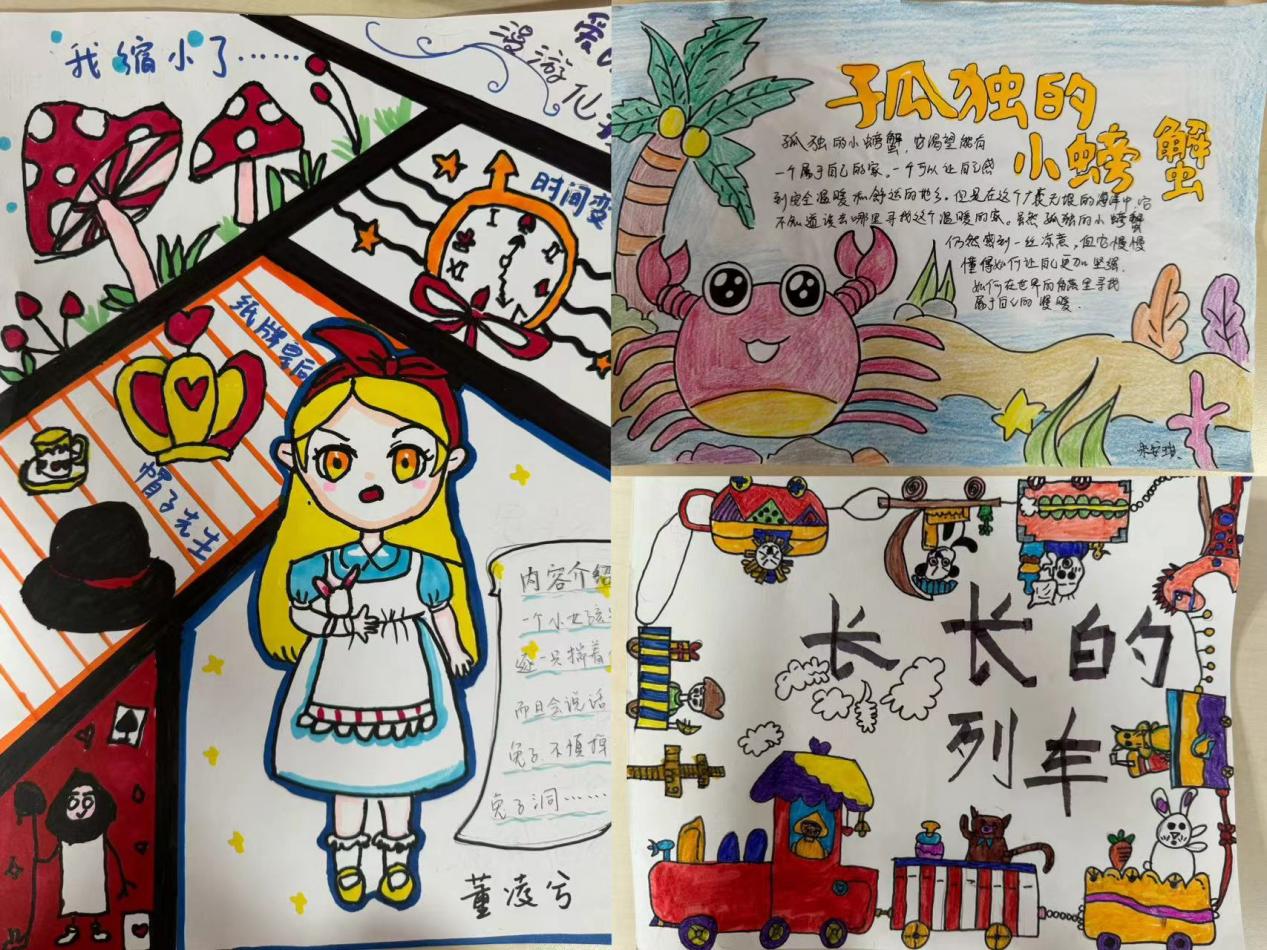 我缩小了……
漫游仙
时间变
纸牌皇后
帽子先生
内容介绍
一个小女孩
逐一只揣着
而且会说话
兔子不慎掉
兔子洞……
董凌兮
孤独的
小螃蟹
孤独的小螃蟹,它渴望能有
一个属于自己的家。一个可以让自己感
到安全温暖和舒适的地方。但是在这个广袤无垠的海洋中,它
不知道该去哪里寻找这个温暖的家。虽然孤独的小螃蟹
仍然感到一丝凉意,但它慢慢
懂得如何让自己更加坚强.
如何在世界的角落里寻找
属于自己的温暖.
长长的
列车